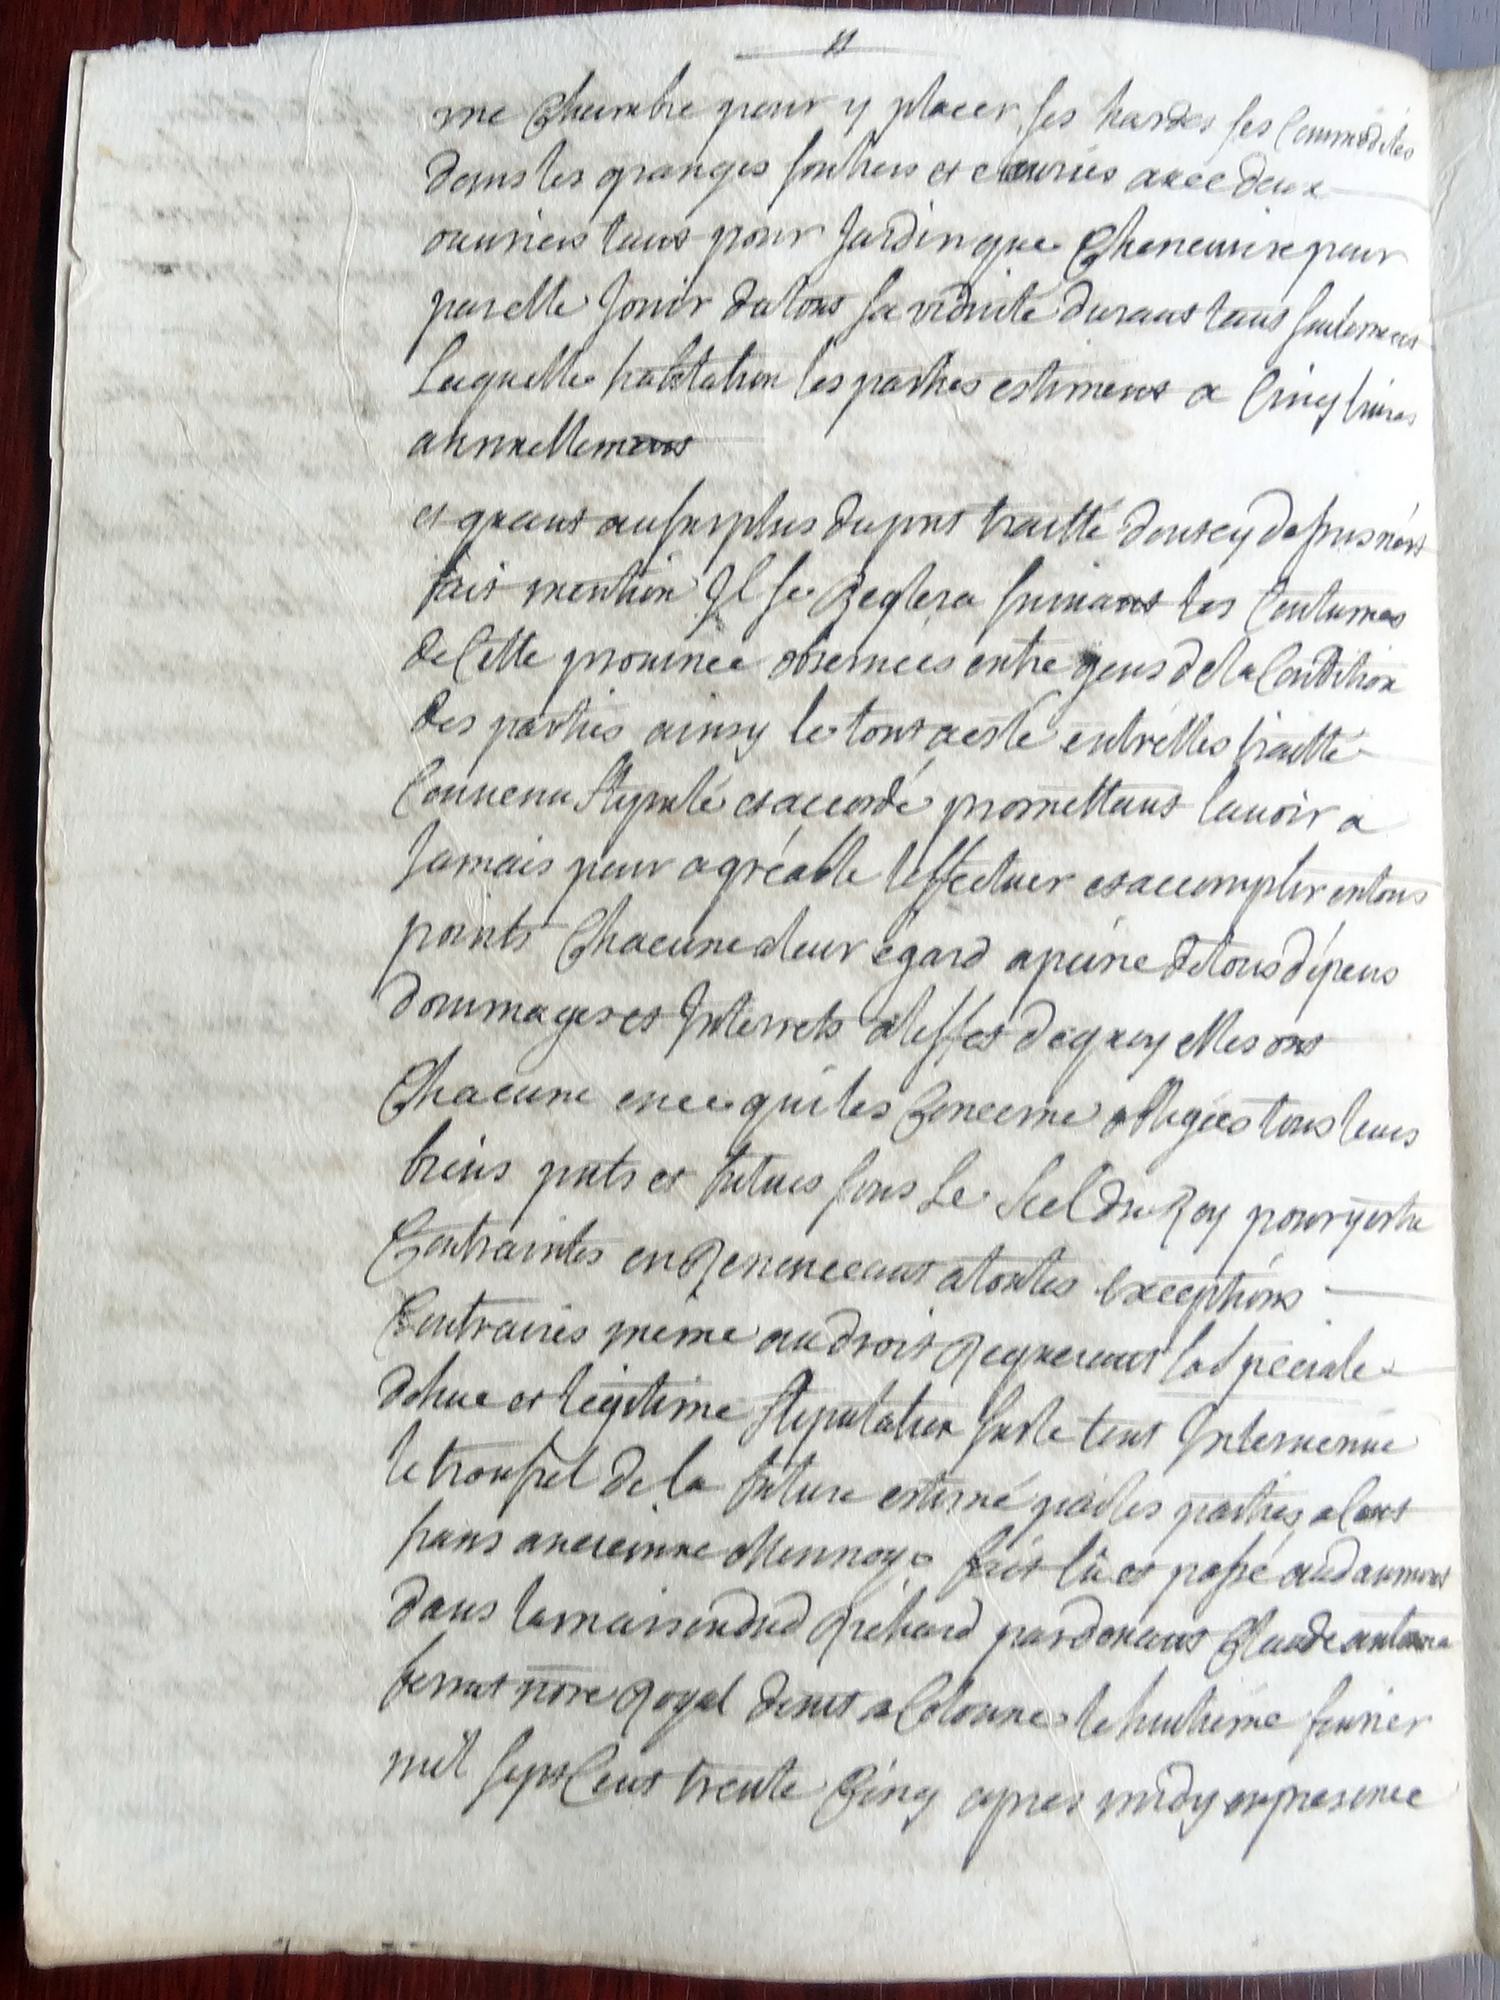 me Chambre pour y placer ses hardes ses Commodités
dans les granges soubtres et escuries avec deux
ouvriers tant pour Jardin que Cheneviere pour
par elle Jouir du tout sa viduité durant tant seulement
Laquelle habitation les parties estiment a Cinq livres
annuellement
et quant au surplus du pnt traitté dont cy dessus n'est
fait mention Il se Reglera suivant les Coutumes
de Cette province observees entre gens de la Condition
des parties ainsy le tout a esté entr'elles traitté
Convenu stipulé et accordé promettant lavoir a
Jamais pour agréable l'effectuer et accomplir en tous
points Chacune a leur égard a peine de tous dépens
dommages et Interrets a leffet de quoy elles ont
Chacune en ce qui les Concerne obligées tous leurs
biens pnts et futurs sous Le Scel du Roy pour y estre
Contraintes en Renonceant a toutes exceptions
Contraires même au droit Requerant la speciale
dehue et legitime stipulation sur le tout Intervenue
le troussel de la future estimé par les parties a Cent
frans ancienne Monnoye fait lû et passé aud aumont
dans la maison dud Richard pardevant Claude antoine
ferrut nore Royal demt a Colonne le huitième fevrier
mil sept Cent trente Cinq apres midy en presence